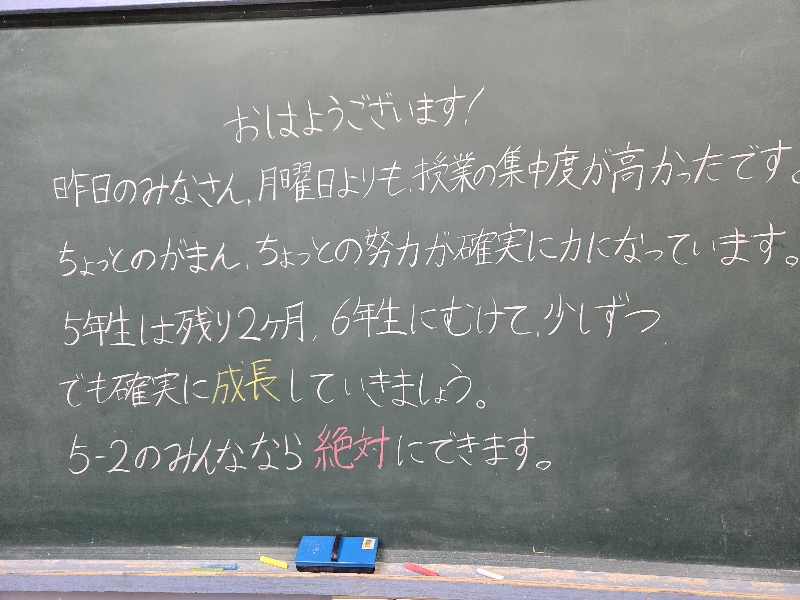 おはようございます!
昨日のみなさん、月曜日よりも、授業の集中度が高かったです。
ちょっとのがまん、ちょっとの努力が確実に力になっています。
5年生は残り2ヶ月、6年生にむけて、少しずつ
でも確実に成長していきましょう。
5-2のみんななら絶対にできます。